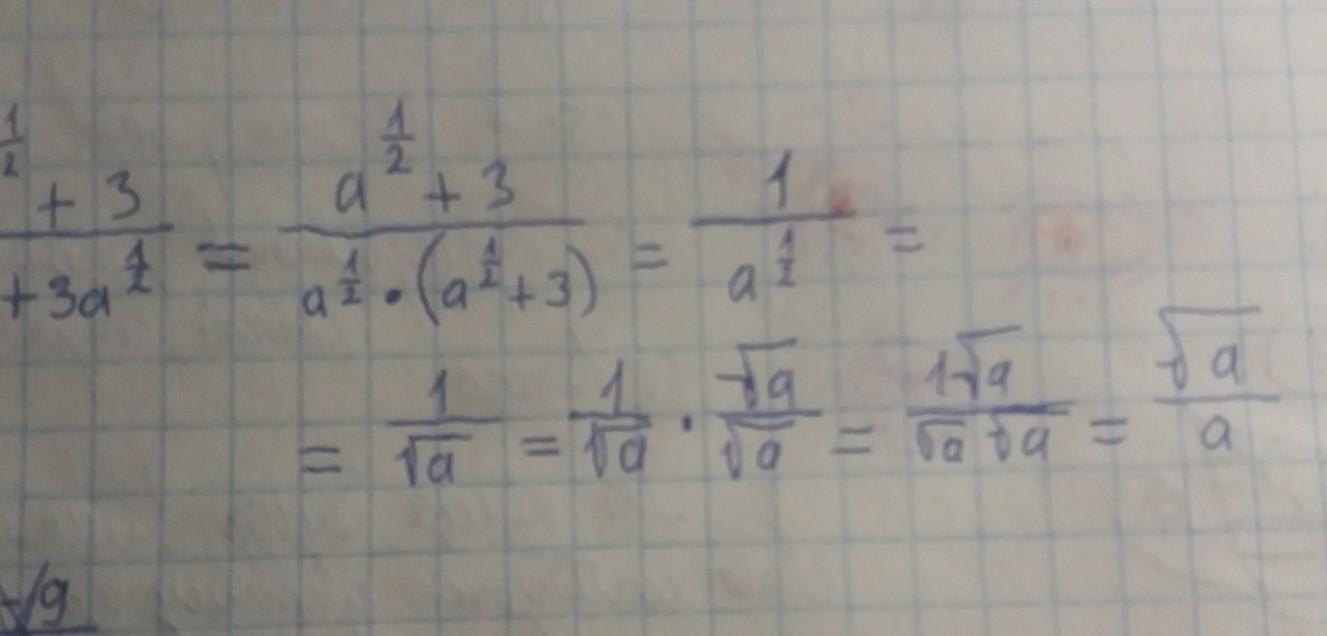 1/2 + 3 / + 3a^(1/2) = (a^(1/2) + 3) / (a^(1/2) • (a^(1/2) + 3)) = 1 / a^(1/2) =
= 1/√a = 1/√a · √a/√a = 1√a / √a √a = √a / a
√9